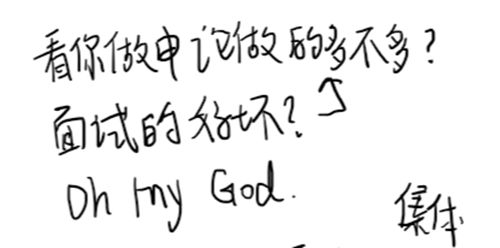 看你做申论做的多不多？
面试的好坏？↑
Oh my God.
集体